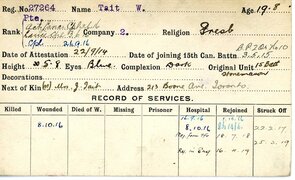 Reg. No. 27264 Name Tait W. Age 19.8
Pte.
Rank Company. 2. Religion Presb
Cpl. 26.9.16
Date of Attestation 22/9/14 Date of joining 15th Can. Battn. 3.5.15
Height 5.8 Eyes Blue. Complexion Dark Original Unit 15 Batt
Decorations
Next of Kin Mrs. J. Tait. Address 213 Boone Ave. Toronto.
RECORD OF SERVICES.
Killed Wounded Died Missing Prisoner Hospital Rejoined Struck Off
8.10.16 8.10.16 22.2.17
16.7.18 25.2.19
16.4.19